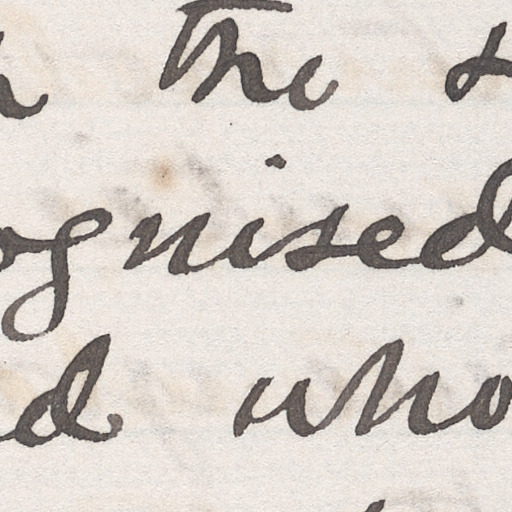 the
ognised
d who